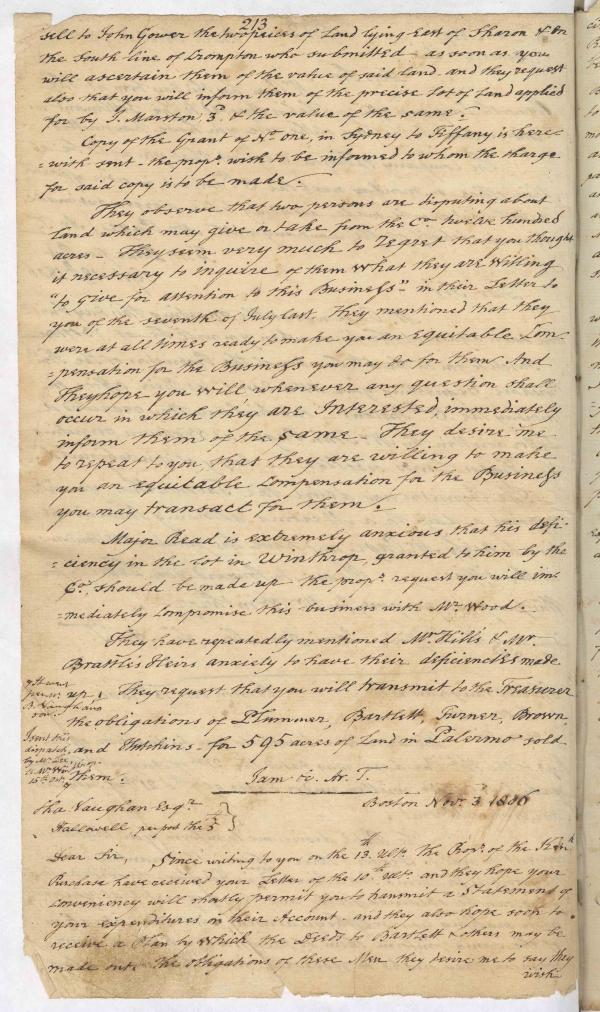 213
sell to John Gower the two peices of Land lying East of Sharon & on
the South line of Crompton who submitted - as soon as you
will ascertain them of the value of said land and they request
also that you will inform them of the precise lot of Land applied
for by J. Marston 3d. & the value of the same.
Copy of the Grant of No. one, in Sydney to Tiffany is here=
=with sent - the propr. wish to be informed to whom the charge
for said copy is to be made.
They observe that two persons are disputing about
land which may give or take from the Co. twelve hundred
acres - They seem very much to regret that you thought
it necessary to inquire of them what they are willing
"to give for attention to this Business" in their Letter to
you of the seventh of July last. They mentioned that they
were at all times ready to make you an equitable Com-
=pensation for the Business you may do for them And
They hope you will whenever any question shall
occur in which they are Interested, immediately
inform them of the same - They desire me
to repeat to you, that they are willing to make
you an equitable Compensation for the Business
you may transact for them.
Major Read is extremely anxious that his defi-
=ciency in the lot in Winthrop, granted to him by the
Co. should be made up the propr. request you will im-
=mediately compromise this business with Mr. Wood.
They have repeatedly mentioned Mr. Hill's & Mr.
Brattle's Heirs anxiety to have their deficiencies made
up. They request that you will transmit to the Treasurer
the obligations of Plummer, Bartlett, Turner, Brown,
and Hutchins - for 595 acres of Land in Palermo sold
them.
I sent this
dispatch
by Mr.
15th Oct.
I am &c. Ar. T.
Boston Nov. 3 1806
Cha Vaughan Esqr.
Hallowell per post the 5th
Dear Sir, Since writing to you on the 13th Ulto. The Propr. of the Kenn
Purchase have received your Letter of the 10th Ulto. and they hope your
conveniency will shortly permit you to transmit a Statement of
your expenditures on their Account - and they also hope soon to
receive a Plan by which the Deeds to Bartlett & others may be
made out. The obligations of these Men they desire me to say they
wish